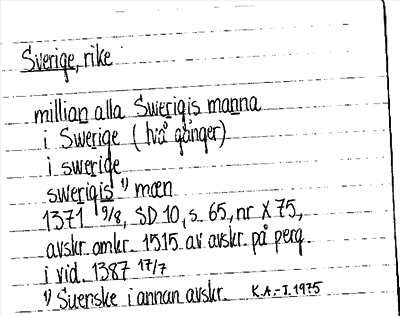 Sverige, rike
millian alla Swerigis manna
i Swerige (två gånger)
i swerige
swerigis ¹) mæn
1371 9/8, SD 10, s. 65, nr X 75,
avskr. omkr. 1515 av avskr. på perg.
i vid. 1387 17/7
¹) Suenske i annan avskr. K.A.-I. 1975